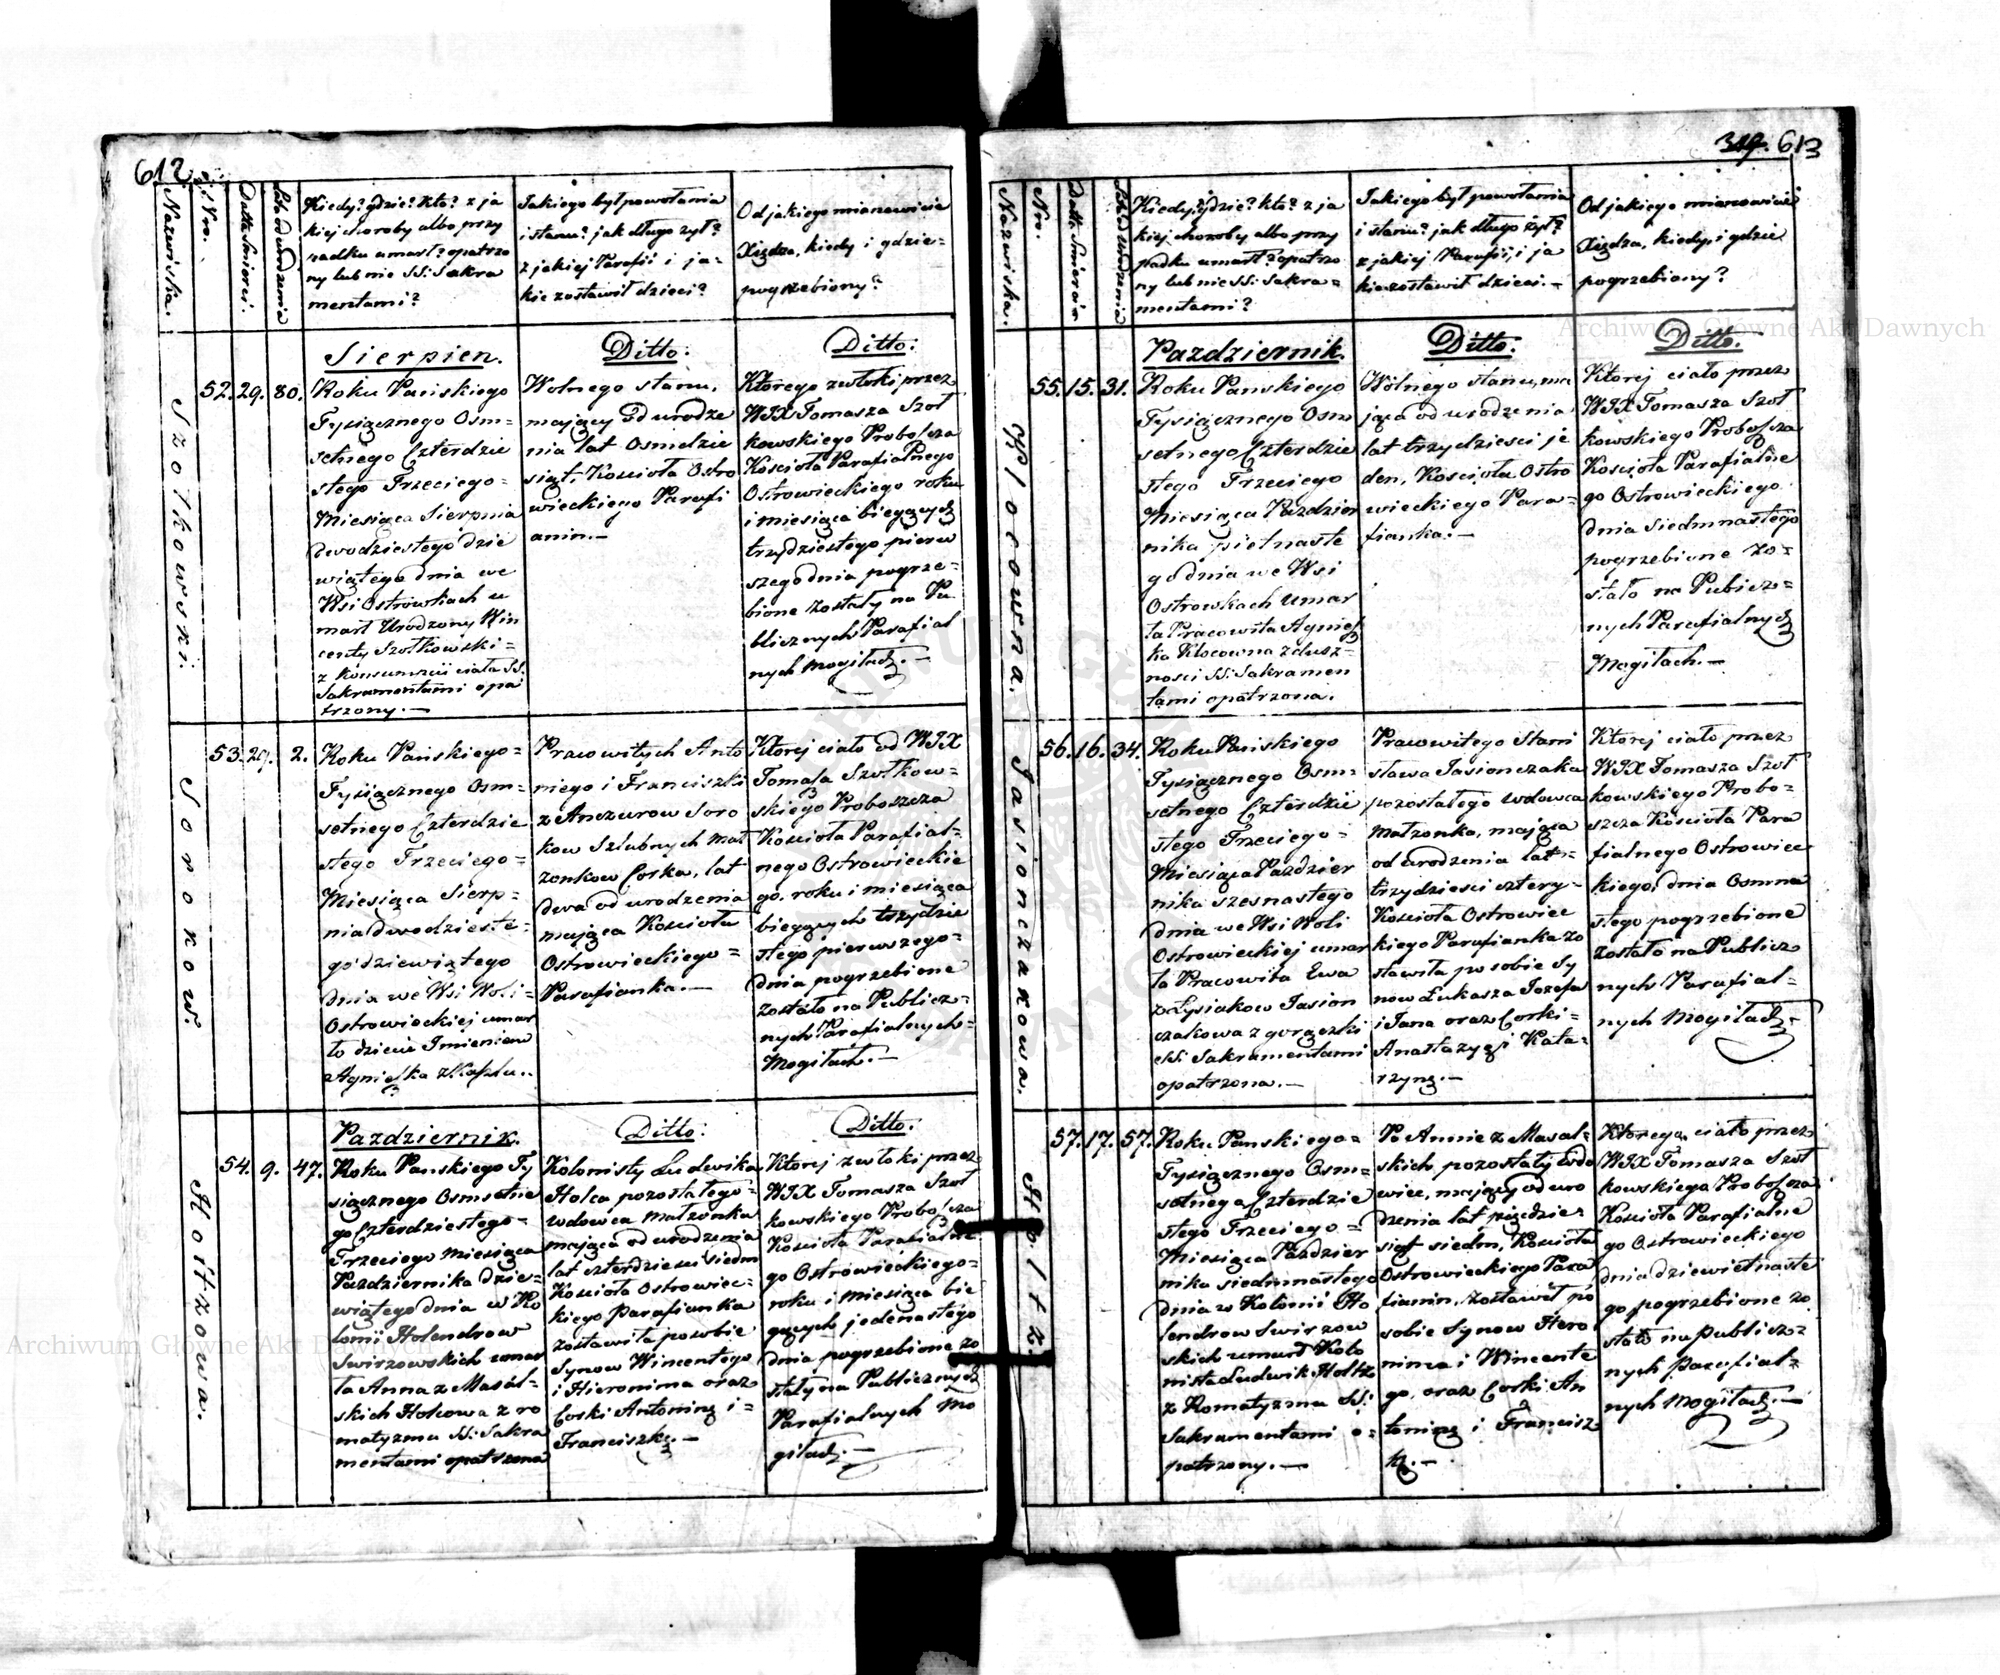 612.
Nazwiska.
Nro.
Datta Smierci.
Lata od urodzenia
Kiedy? gdzie? kto? z ja
kiej choroby albo przy
padku umarł? opatrzo
ny lub nie SS: Sakra
mentami?
Jakiego był powołania
i stanu? jak długo żył?
z jakiej Parafii i ja=
kie zostawił dzieci?
Od jakiego mianowicie
Xiędza, kiedy i gdzie=
pogrzebiony?
Szołkowski.
52. 29. 80.
Sierpien.
Roku Pańskiego
Tysiącznego Osm=
setnego Czterdzie
stego Trzeciego=
Miesiąca Sierpnia
dwodziestego dzie
wiątego dnia we
Wsi Ostrowkach u
marł Urodzony Win
centy Szołkowski=
z Konsumcii ciała SS.
Sakramentami opa
trzony.—
Ditto:
Wolnego stanu,
mający Od urodze
nia lat Osmdzie
siąt, Kościoła Ostro
wieckiego Parafi
anin.—
Ditto:
Którego zwłoki przez
WJX Tomasza Szoł
kowskiego Proboszcza
Kościoła Parafialnego
Ostrowieckiego roku
i miesiąca bieących
trzydziestego pierw
szego dnia pogrze=
bione zostały na Pu
blicznych Parafial
nych Mogiłach.—
Sorokow.
53. 29. 2.
Roku Pańskiego=
Tysiącznego Osm=
setnego Czterdzie
stego Trzeciego=
Miesiąca Sierp=
nia dwodzieste=
go dziewiątego
dnia we Wsi Woli=
Ostrowieckiej umar
ło dziecie Imieniem
Agnieszka z Kaszlu..
Pracowitych Anto
niego i Franciszki
z Anczurow Soro
kow Szlubnych Mał
żonkow Corka, lat
dwa od urodzenia
mająca Kościoła
Ostrowieckiego=
Parafianka.—
Ktorej ciało od WJX
Tomasza Szołkow=
skiego Proboszcza
Kościoła Parafial=
nego Ostrowieckie
go, roku i miesiąca
bieących trzydzie
stego pierwszego=
dnia pogrzebione
zostało na Publicz=
nych Parafialnych=
Mogiłach.—
Holtzowa.
54. 9. 47.
Pazdziernik.
Roku Panskiego Ty
siącznego Osmsetne
go Czterdziestego=
Trzeciego Miesiąca
Pazdziernika dzie=
wiątego dnia w Ko
lonii Holendrow
Swirzowskich umar
ła Anna z Masal=
skich Holcowa z ro
matyzmu SS: Sakra
mentami opatrzona
Ditto:
Kolonisty Ludwika
Holca pozostałego=
wdowca Małżonka
mająca od urodzenia
lat czterdzieści siedm
Kościoła Ostrowiec=
kiego Parafianka
zostawiła po sobie
Synow Wincentego
i Hieronima oraz
Corki Antoninę i=
Franciszkę.—
Ditto.
Ktorej zwłoki przez
WJX Tomasza Szoł
kowskiego Proboszcza
Kościoła Parafialne
go Ostrowieckiego=
roku i Miesiąca bie
ących jedenastego
dnia pogrzebione zo
stały na Publicznych
Parafialnych Mo
giłach.—
613
Nazwiska.
Nro.
Datta Smierci
Lata od urodzenia
Kiedy, gdzie? kto? z ja
kiej choroby albo przy
padku umarł? opatrzo
ny lub nie SS: Sakra=
mentami?
Jakiego był powołania
i stanu? jak długo żył?
z jakiej Parafii, i ja
kie zostawił dzieci.—
Od jakiego mianowicie
Xiędza, kiedy i gdzie
pogrzebiony?
Klocowna.
55. 15. 31.
Pazdziernik.
Roku Panskiego
Tysiącznego Osm
setnego Czterdzie
stego Trzeciego
Miesiąca Pazdzier
nika pietnaste
go dnia we Wsi
Ostrowkach umar
ła Pracowita Agniesz
ka Klocowna z dusz=
nosci SS: Sakramen
tami opatrzona.
Ditto:
Wolnego stanu, ma
jąca od urodzenia
lat trzydziesci je
den, Kościoła Ostro
wieckiego Para=
fianka.—
Ditto.
Ktorej ciało przez
WJX Tomasza Szoł
kowskiego Proboszcza
Kościoła Parafialne
go Ostrowieckiego
dnia Siedmnastego
pogrzebione zo=
stało na Publicz=
nych Parafialnych
Mogiłach.—
Jasionczakowa.
56. 16. 34.
Roku Pańskiego
Tysiącznego Osm=
setnego Czterdzie
stego Trzeciego=
Miesiąca Pazdzier
nika szesnastego
dnia we Wsi Woli
Ostrowieckiej umar
ła Pracowita Ewa
z Łysiakow Jasion
czakowa z gorączki
SS: Sakramentami
opatrzona.—
Pracowitego Stani
sława Jasionczaka
pozostałego wdowca
Małżonka, mająca
od urodzenia lat=
trzydziesci cztery=
Kościoła Ostrowiec
kiego Parafianka zo
stawiła po sobie Sy
now Łukasza Jozefa
i Jana oraz Corki=
Anastazyę i Kata=
rzynę.—
Ktorej ciało przez
WJX Tomasza Szoł
kowskiego Probo=
szcza Kościoła Para
fialnego Ostrowiec
kiego, dnia Osmna
stego pogrzebione
zostało na Publicz
nych Parafial=
nych Mogiłach.—
Holtz.
57. 17. 57.
Roku Panskiego=
Tysiącznego Osm=
setnego Czterdzie
stego Trzeciego=
Miesiąca Pazdzier
nika siedmnastego
dnia w Kolonii Ho
lendrow Swirzow
skich umarł Kolo
nista Ludwik Holtz
z Romatyzmu SS:
Sakramentami o=
patrzony.—
Po Annie z Masal=
skich, pozostały Wdo
wiec, mający od uro
dzenia lat pięćdzie=
siąt siedm, Kościoła
Ostrowieckiego Para
fianin, Zostawił po
sobie Synow Hero
nima i Wincente
go, oraz Corki An
toninę i Francisz
kę.—
Ktorego ciało przez
WJX Tomasza Szoł
kowskiego Proboszcza
Kościoła Parafialne
go Ostrowieckiego
dnia dziewietnaste
go pogrzebione zo
stało na publicz=
nych parafial=
nych Mogiłach.—
Archiwum Główne Akt Dawnych
Archiwum Główne Akt Dawnych